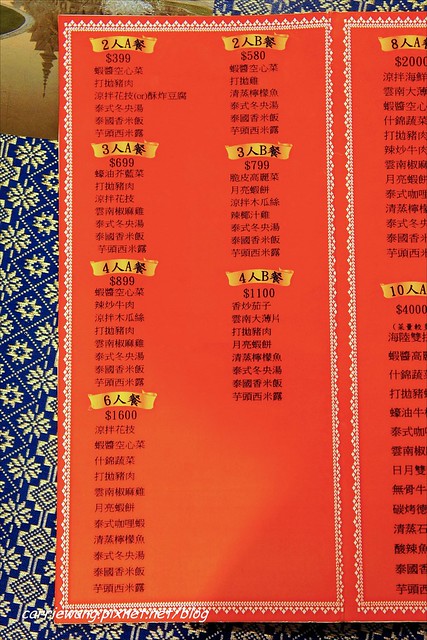 2人A餐
$399
蝦醬空心菜
打拋豬肉
涼拌花技(or)酥炸豆腐
泰式冬央湯
泰國香米飯
芋頭西米露
3人A餐
$699
蠔油芥藍菜
打拋豬肉
涼拌花技
雲南椒麻雞
泰式冬央湯
泰國香米飯
芋頭西米露
4人A餐
$899
蝦醬空心菜
辣炒牛肉
涼拌木瓜絲
打拋豬肉
雲南椒麻雞
泰式冬央湯
泰國香米飯
芋頭西米露
6人餐
$1600
涼拌花技
蝦醬空心菜
什錦蔬菜
打拋豬肉
雲南椒麻雞
月亮蝦餅
泰式咖哩蝦
清蒸檸檬魚
泰式冬央湯
泰國香米飯
芋頭西米露
2人B餐
$580
蝦醬空心菜
打拋雞
清蒸檸檬魚
泰式冬央湯
泰國香米飯
芋頭西米露
3人B餐
$799
脆皮高麗菜
月亮蝦餅
涼拌木瓜絲
辣椰汁雞
泰式冬央湯
泰國香米飯
芋頭西米露
4人B餐
$1100
香炒茄子
雲南大薄片
打拋豬肉
月亮蝦餅
清蒸檸檬魚
泰式冬央湯
泰國香米飯
芋頭西米露
8人A
$2000
涼拌海鮮
雲南大薄
蝦醬空心
什錦蔬菜
打拋豬肉
辣炒牛肉
雲南椒麻
月亮蝦餅
泰式咖哩
清蒸檸檬
泰式冬央
泰國香米
芋頭西米
10人A
$4000
(菜量較
海陸雙拼
蝦醬高麗
什錦蔬菜
打拋豬
蠔油牛
泰式咖
雲南椒
日月雙
無骨牛
碳烤德
清蒸石
酸辣魚
泰國香
芋頭西
carriewang.pixnet.net/blog